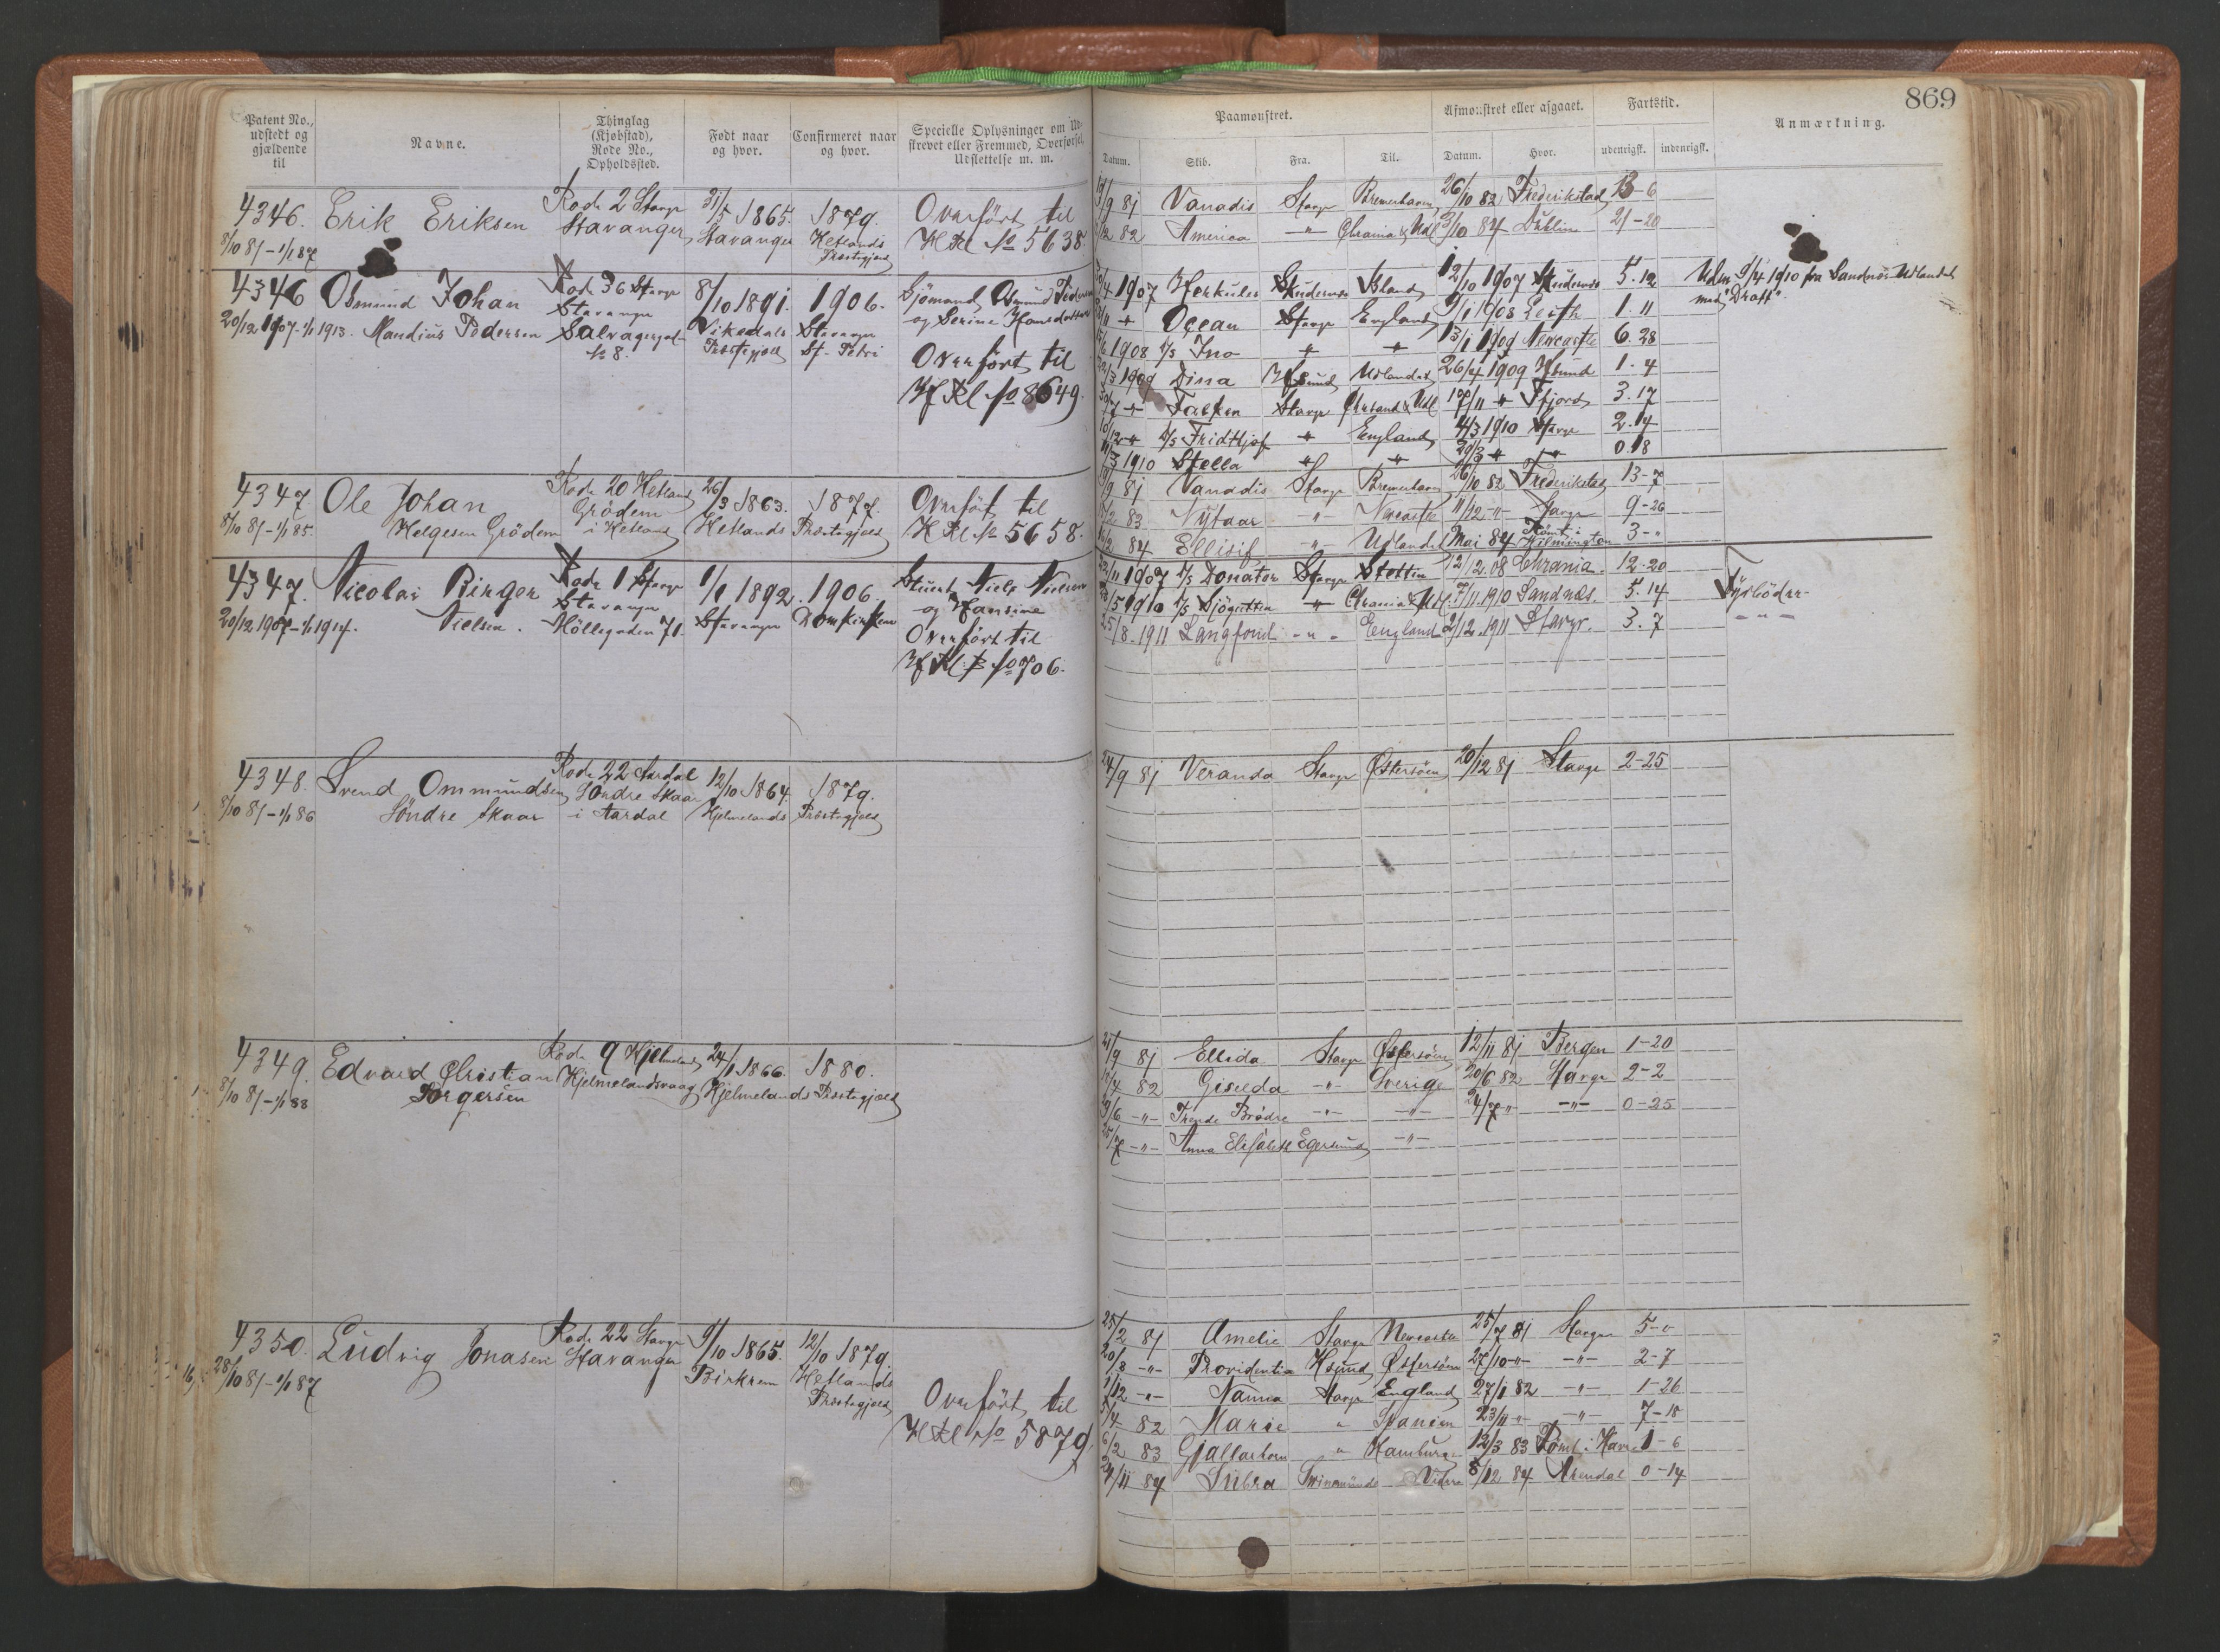 869
Patent No., udstedt og gjældende til
Navne.
Thinglag (Kjøbstad), Rode No., Opholdssted.
Født naar og hvor.
Confirmeret naar og hvor.
Specielle Oplysninger om Udskrevet eller Fremmed, Overførsel, Udslettelse m. m.
Paamønstret.
Afmønstret eller afgaaet.
Fartstid.
Anmærkning.
Datum. Skib. Fra. Til. Datum. Hvor. udenrigsk. indenrigsk.
4346. Erik Eriksen Rode 2 Stavgr 31/5 1865. 1879. Overført til
8/10 81 - 1/1 87 Stavanger Stavanger Hetlands Præstegjeld H Rl No 5638.
9 81 Vanadis Stavgr Bremerhaven 26/10 82 Frederikstad 13-6
12 82 America -"- Chrania & Udl 3/10 84 Dublin 21-20
4346 Osmund Johan Rode 36 Stavgr 8/10 1891. 1906. Sjömand Osmund Pedersen
20/12 1907 - 1/1 1913. Mandius Pedersen Stavanger Vikedals Stavanger og Serine Hansdatter
Salvagergd. Præstegjeld St. Petri
No 8. Overført til
H Rl No 8649.
4 1907 Herkules Skudesnes Island 12/10 1907 Skudesnes 5.12 Udm 5/4 1910 fra Sandnæs Udlandet
11 " Ocean Stavgr England 9/1 1908 Leith 1.11 med "Draft".
1908 D/s Ino " " 13/1 1909 Newcastle 6.28
3 1909 Dina Hsund Udlandet 26/4 1909 Hsund 1.4
7 " Falken Stavgr Chrsand & Udl 17/11 " Ffjord 3.17
12 " D/s Fridthjof " England 4/3 1910 Stavgr 2.14
3 1910 Stella " " 29/3 " " 0.18
4347. Ole Johan Rode 20 Hetland 26/3 1863. 1877. Overført til
8/10 81 - 1/1 85. Helgesen Grödem Grödem i Hetland Hetlands Præstegjeld H Rl No 5658.
9 81 Vanadis Stavgr Bremerhaven 26/10 82 Frederikstad 13-7
2 83 Nyfaar " Newcastle 11/12 " Stavgr 9-26
2 84 Ellisif " Udlandet Mai 84 Römt i Wilmington 3-"
4347. Nicolai Birger Rode 1 Stavgr 1/1 1892. 1906. Stuert Niels Nielsen
20/12 1907 - 1/1 1914. Nielsen. Stavanger Stavanger Domkirken og Hansine
Möllegaden 71. Overført til
H Rl B No 706.
11 1907 D/s Donator Stavgr Stettin 12/12.08 Chrania. 12-20
5 1910 D/s Sjögutten " Chrania & Udl. 7/11.1910 Sandnæs. 5.14 Fyrböder
25/8.1911 Langfond -"- England 2/12.1911 Stavgr. 3.7 -"-
4348. Svend Ommundsen Rode 22 Aardal 12/10 1864. 1879.
8/10 81 - 1/1 86 Söndre Skaar Söndre Skaar i Aardal Hjelmelands Præstegjeld
24/9 81 Veranda Stavgr Østersöen 20/12 81 Stavgr 2-25
4349. Edvard Christian Rode 9 Hjelmeland 24/1 1866. 1880.
8/10 81 - 1/1 88 Torgersen Hjelmelandsvaag Hjelmelands Præstegjeld
21/9 81 Ellida Stavgr Østersöen 12/11 81 Bergen 1-20
4 82 Giselda -"- Sverige 20/6 82 Stavgr 2-2
6 -"- Trende Brødre -"- -"- 24/7 " -"- 0-25
25/7 -"- Anna Elisabeth Egersund -"-
4350. Ludvig Jonasen Rode 22 Stavgr 9/10 1865. 12/10 1879.
28/10 81 - 1/1 87 Stavanger Birkrem Hetlands Præstegjeld
Overført til
H Rl No 5879
25/2 81 Amelie Stavgr Newcastle 25/7 81 Stavgr 5-0
20/8 -"- Providentia Hsund Østersöen 27/10 -"- -"- 2-7
12 -"- Nanna Stavgr England 27/1 82 -"- 1-26
5/4 82 Marie " Spanien 23/11 " -"- 7-18
6/2 83 Gjallarhorn " Hamburg 12/3 83 Römt i Havre 1-6
24/11 84 Subra Swinemünde 8/12 84 Arendal 0-14